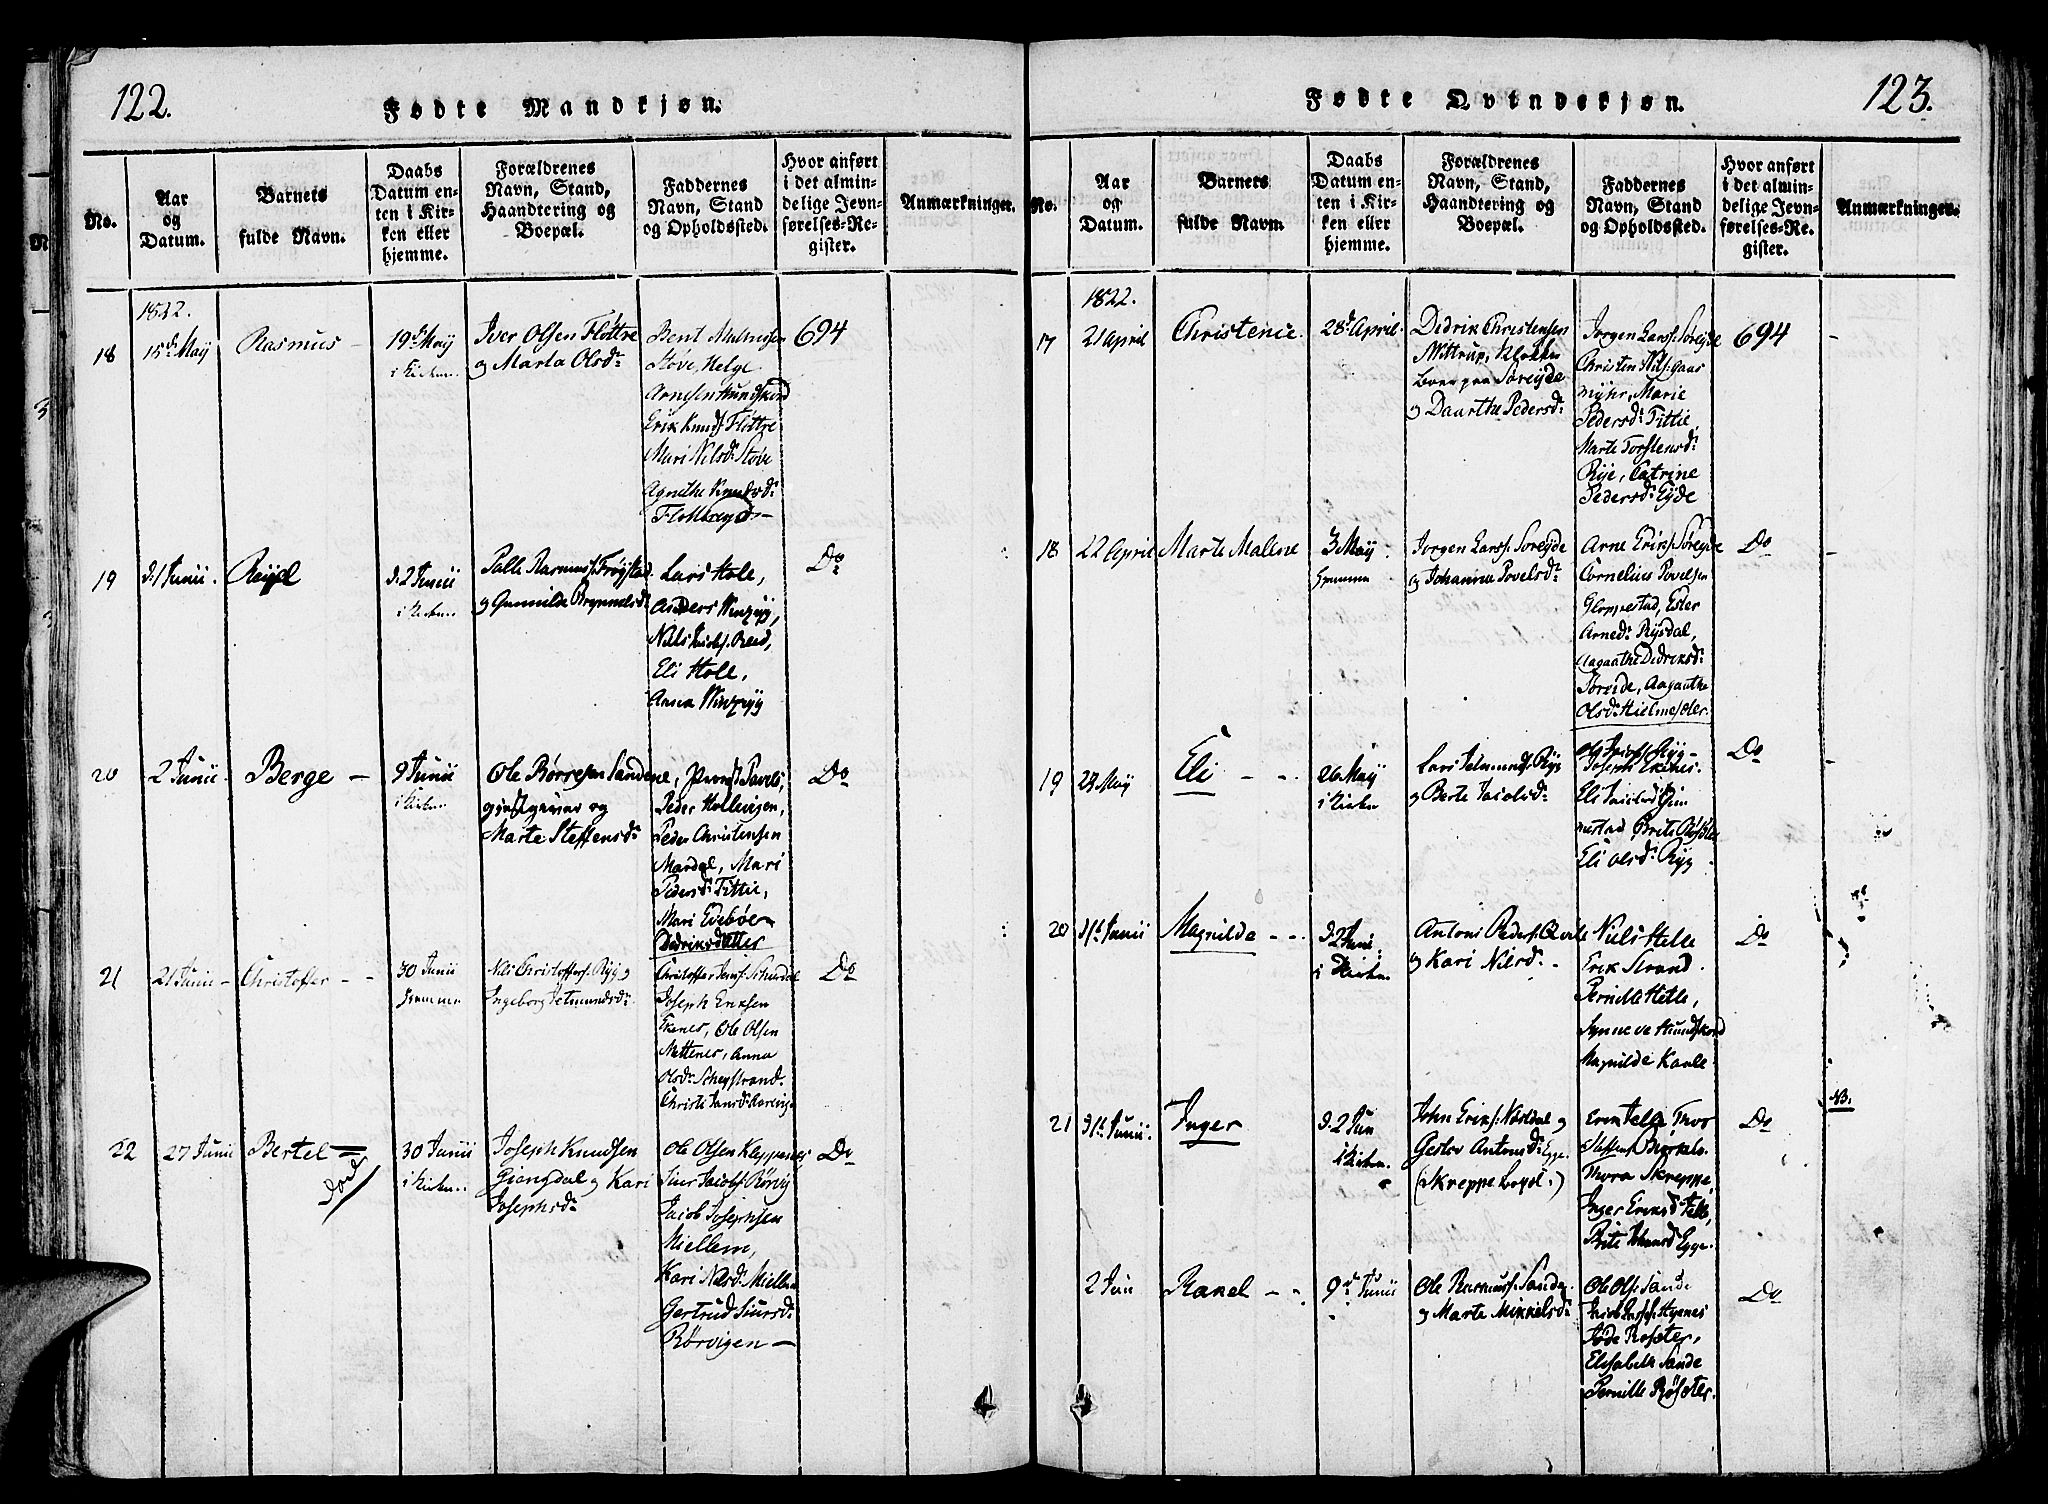 122.
Fødte Mandkjøn.
No.
Aar
og
Datum.
Barnets
fulde Navn.
Daabs
Datum en-
ten i Kir-
ken eller
hjemme.
Forældrenes
Navn, Stand,
Haandtering og
Boepæl.
Faddernes
Navn, Stand
og Opholdssted.
Hvor anført
i det almin-
delige Jevn-
førelses-Re-
gister.
Anmærkninger.
1822.
18
15d May
Rasmus
19d May
i Kirken
Iver Olsen Fløttre
og Marta Olsd:
Bent
Støve, Helge
Arnesen Hundskord
Erik Knuds. Flottre
Mari Nilsd: Støve
Agnethe Knudsd:
694
19
d. 1 Junii
Røyel
d. 2 Junii
i Kirken
Palle Rasmuss. Frøystad
og Gunnilde Brynnelsd:
Lars Hole,
Anders
Nils
Eli Hole,
Anna
Do
20
2 Junii
Berge
9 Junii
i Kirken
Ole Børresen Sandene,
giestgiver og
Marte Steffensd:
Peder
Peder Christensen
Mardal, Mari
Pedersd: Tittie,
Mari Evebøe
Didriksdatter
Do
21
21 Junii
Christoffer
30 Junii
hjemme
Nils Christoffers. Ryg og
Ingeborg Jetmundsd:
Christoffer
Joseph Eriksen
Ekenes, Ole Olsen
Nettenes, Anna
Olsd:
Christi Jansd:
Do
22
27 Junii
Bertel
død
30 Junii
i Kirken
Joseph Knudsen
Giengdal og Kari
Josephsd:
Ole Olsen Kleppenes
Siur Jacobs. Rørvig
Jacob Josephsen
Miellem,
Kari Nilsd: Miellem
Gertrud Siursd:
Rørvigen
Do
123.
Fødte Qvindekjøn.
No.
Aar
og
Datum.
Barnets
fulde Navn.
Daabs
Datum en-
ten i Kir-
ken eller
hjemme.
Forældrenes
Navn, Stand,
Haandtering og
Boepæl.
Faddernes
Navn, Stand
og Opholdssted.
Hvor anført
i det almin-
delige Jevn-
førelses-Re-
gister.
Anmærkninger.
1822.
17
21 April
Christenie
28d April
Didrik Christensen
Wittrup, Klokker
Boen paa Søreyde
og Daarthe Pedersd:
Jørgen Larss. Søreyde
Christen Nils. Gaas
myhr, Marie
Pedersd: Tittie,
Marte Torstensd:
Rye, Catrine
Pedersd: Eyde
694
18
22 April
Marte Malene
3 May
hjemme
Jørgen Larss. Søreyde
og Johanne Povelsd:
Arne Eriks. Søreyde
Cornelius Povelsen
Gloppestad, Ester
Arned: Rysdal,
Aagaathe Didriksd:
Søreide, Aagaathe
Olsd: Hielmeseter
Do
19
Eli
26 May
i Kirken
Lars Jetmunds. Ryg
og Berte Jacobsd:
Joseph Ekenes
Eli
Eli Olsd: Ryg
Do
20
1ste Junii
Magnilde
d. 2 Juni
i Kirken
Antoni Peders.
og Kari Nilsd:
Niels Hetle
Erik Strand
Pernille Hetle,
Synneve Hundskord
Magnilde Kaale
Do
21
1ste Junii
Inger
d. 2 Jun
i Kirken
John Eriks. Nosdal og
Geslov Antonsd: Egge
(: Skreppe Loyd :)
Thora Skreppe,
Inger Eriksd: Telle,
Brite Johansd Egge
Do
NB.
2 Jun
Rakel
9d Junii
Ole Rasmuss. Sande
og Marte Mikkelsd:
Ole Ols. Sande
Elisabeth Sande
Pernille Røsæter
Do